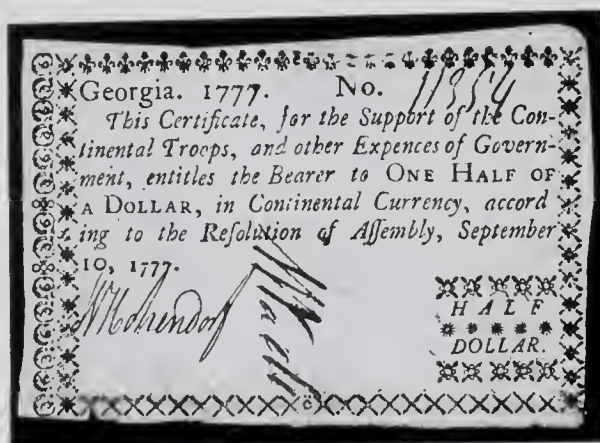 Georgia. 1777. No. 11354
This Certificate, for the Support of the Con-
tinental Troops, and other Expences of Govern-
ment, entitles the Bearer to ONE HALF OF
A DOLLAR, in Continental Currency, accord
ing to the Resolution of Assembly, September
10, 1777.
HALF
DOLLAR.